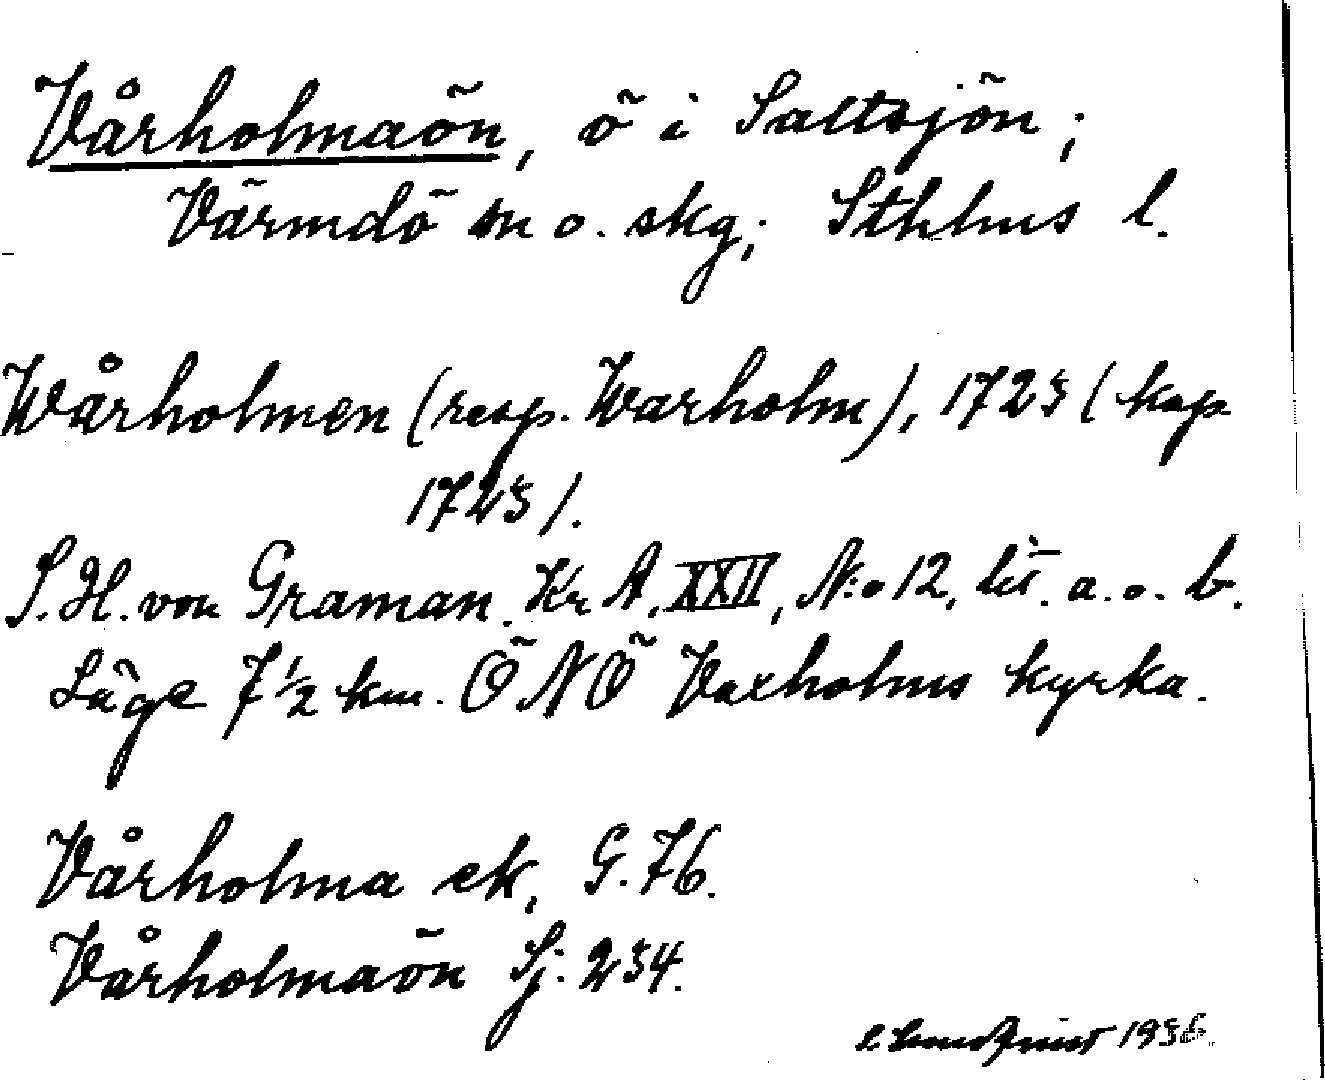 Vårholmaön, ö i Saltsjön;
Värmdö sn o. skg; Sthlms l.
Wårholmen (resp. Warholm), 1725 (kop
1725).
S.H. von Graman. Kr A, XXII, N:o 12, lit. a. o. b.
Läge 7 1/2 km. ÖNÖ Vaxholms kyrka.
Vårholma ek, G. 76.
Vårholmaön Sj. 234.
1936.